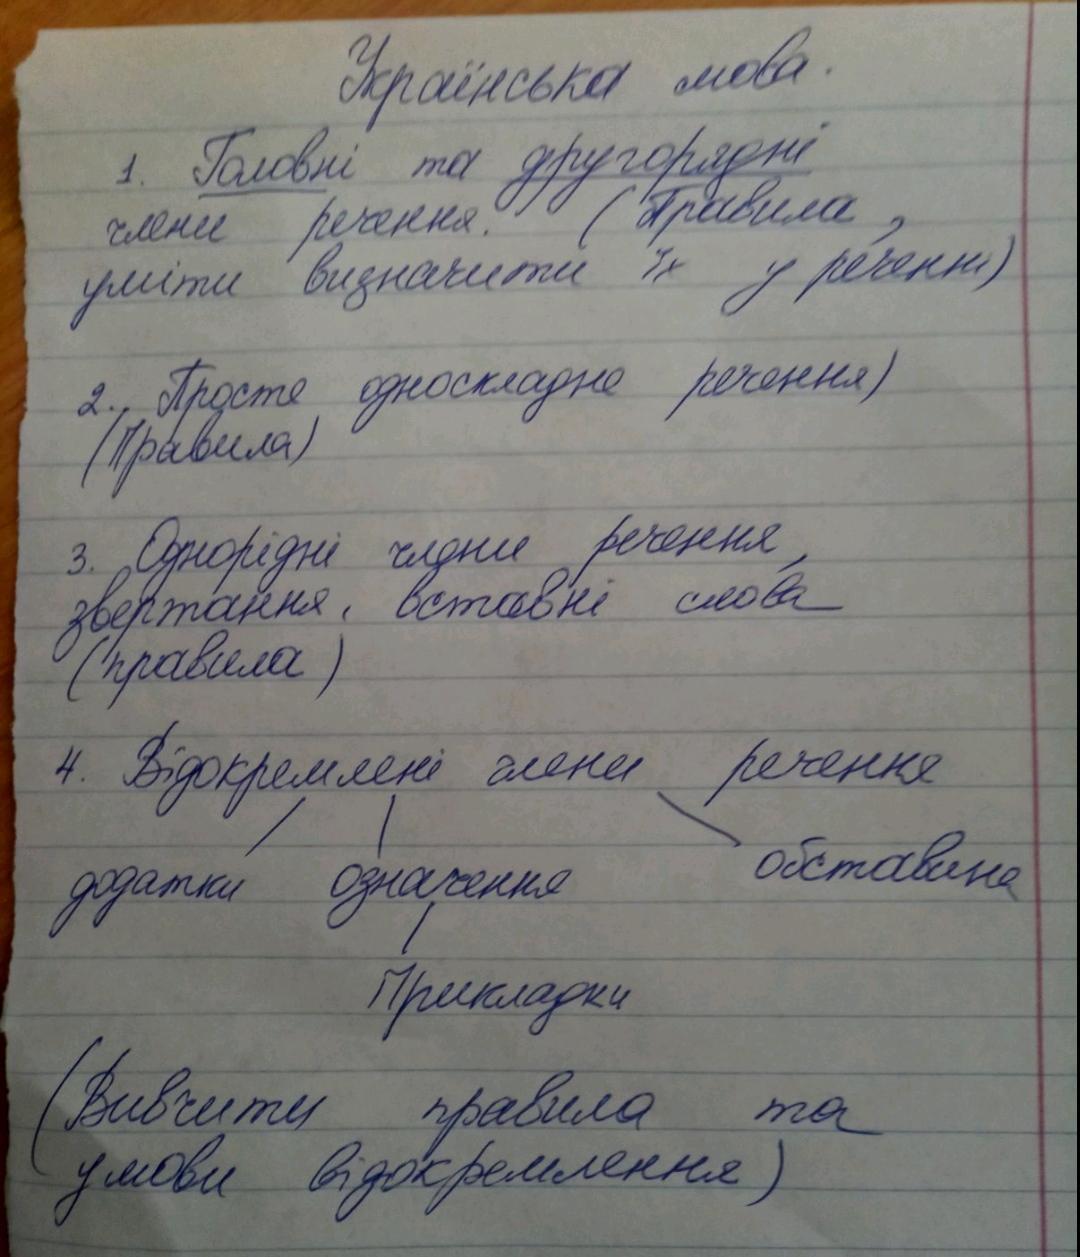 Українська мова.
1. Головні та другорядні
члени речення. (Правила,
уміти визначити їх у реченні)
2. Просте односкладне речення)
(Правила)
3. Однорідні члени речення,
звертання, вставні слова
(правила)
4. Відокремлені члени речення
додатки означення обставина
Прикладки
(Вивчити правила та
умови відокремлення)